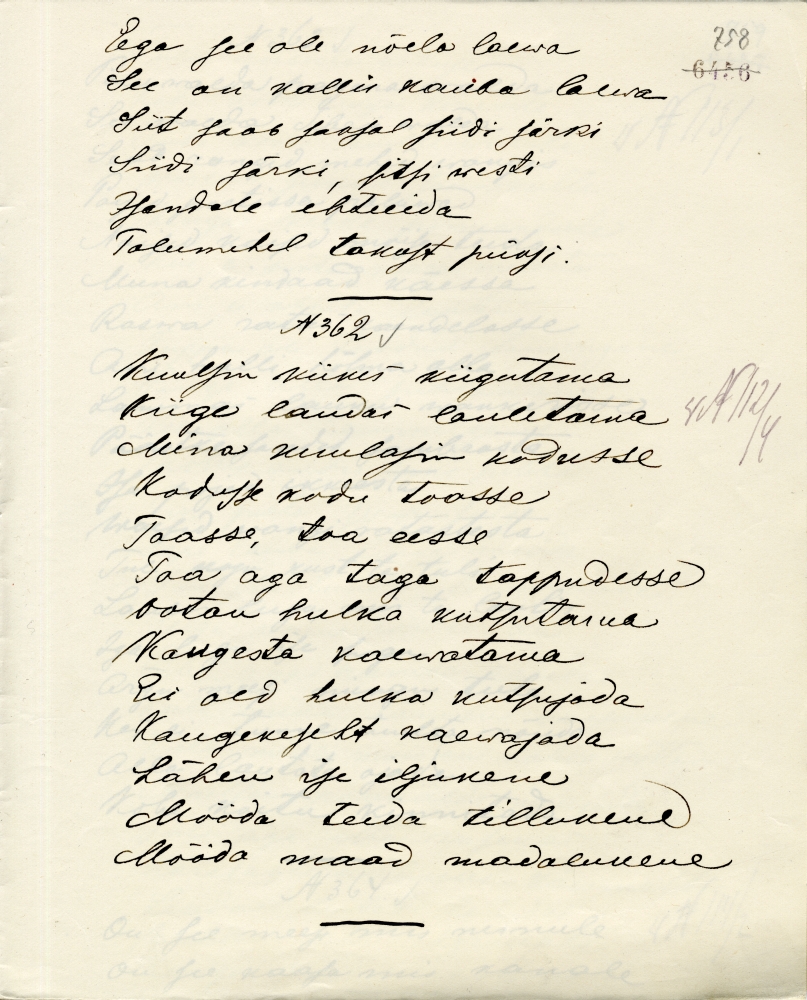 758
6456
Eega see ole nõela laewa
See on kallis kauba laewa
Siit saab saksal siidi särki
Siidi särki, sitsi westi
Isandale ehteeida
Talumehel takust püksi.
N 362
Kuulsin kiikes kiigutama
Kiige laudas lauletama
Mina kuulasin kodusse
Kodusse kodu toasse
Toasse, toa eesse
Toa aga taga tappudesse
Ootan hulka kutsutama
Kaugesta kaewatama
Ei old hulka kutsujada
Kaugekeselt kaewajada
Lähen ise iljukene
Mööda teeda tillukene
Mööda maad madalukene